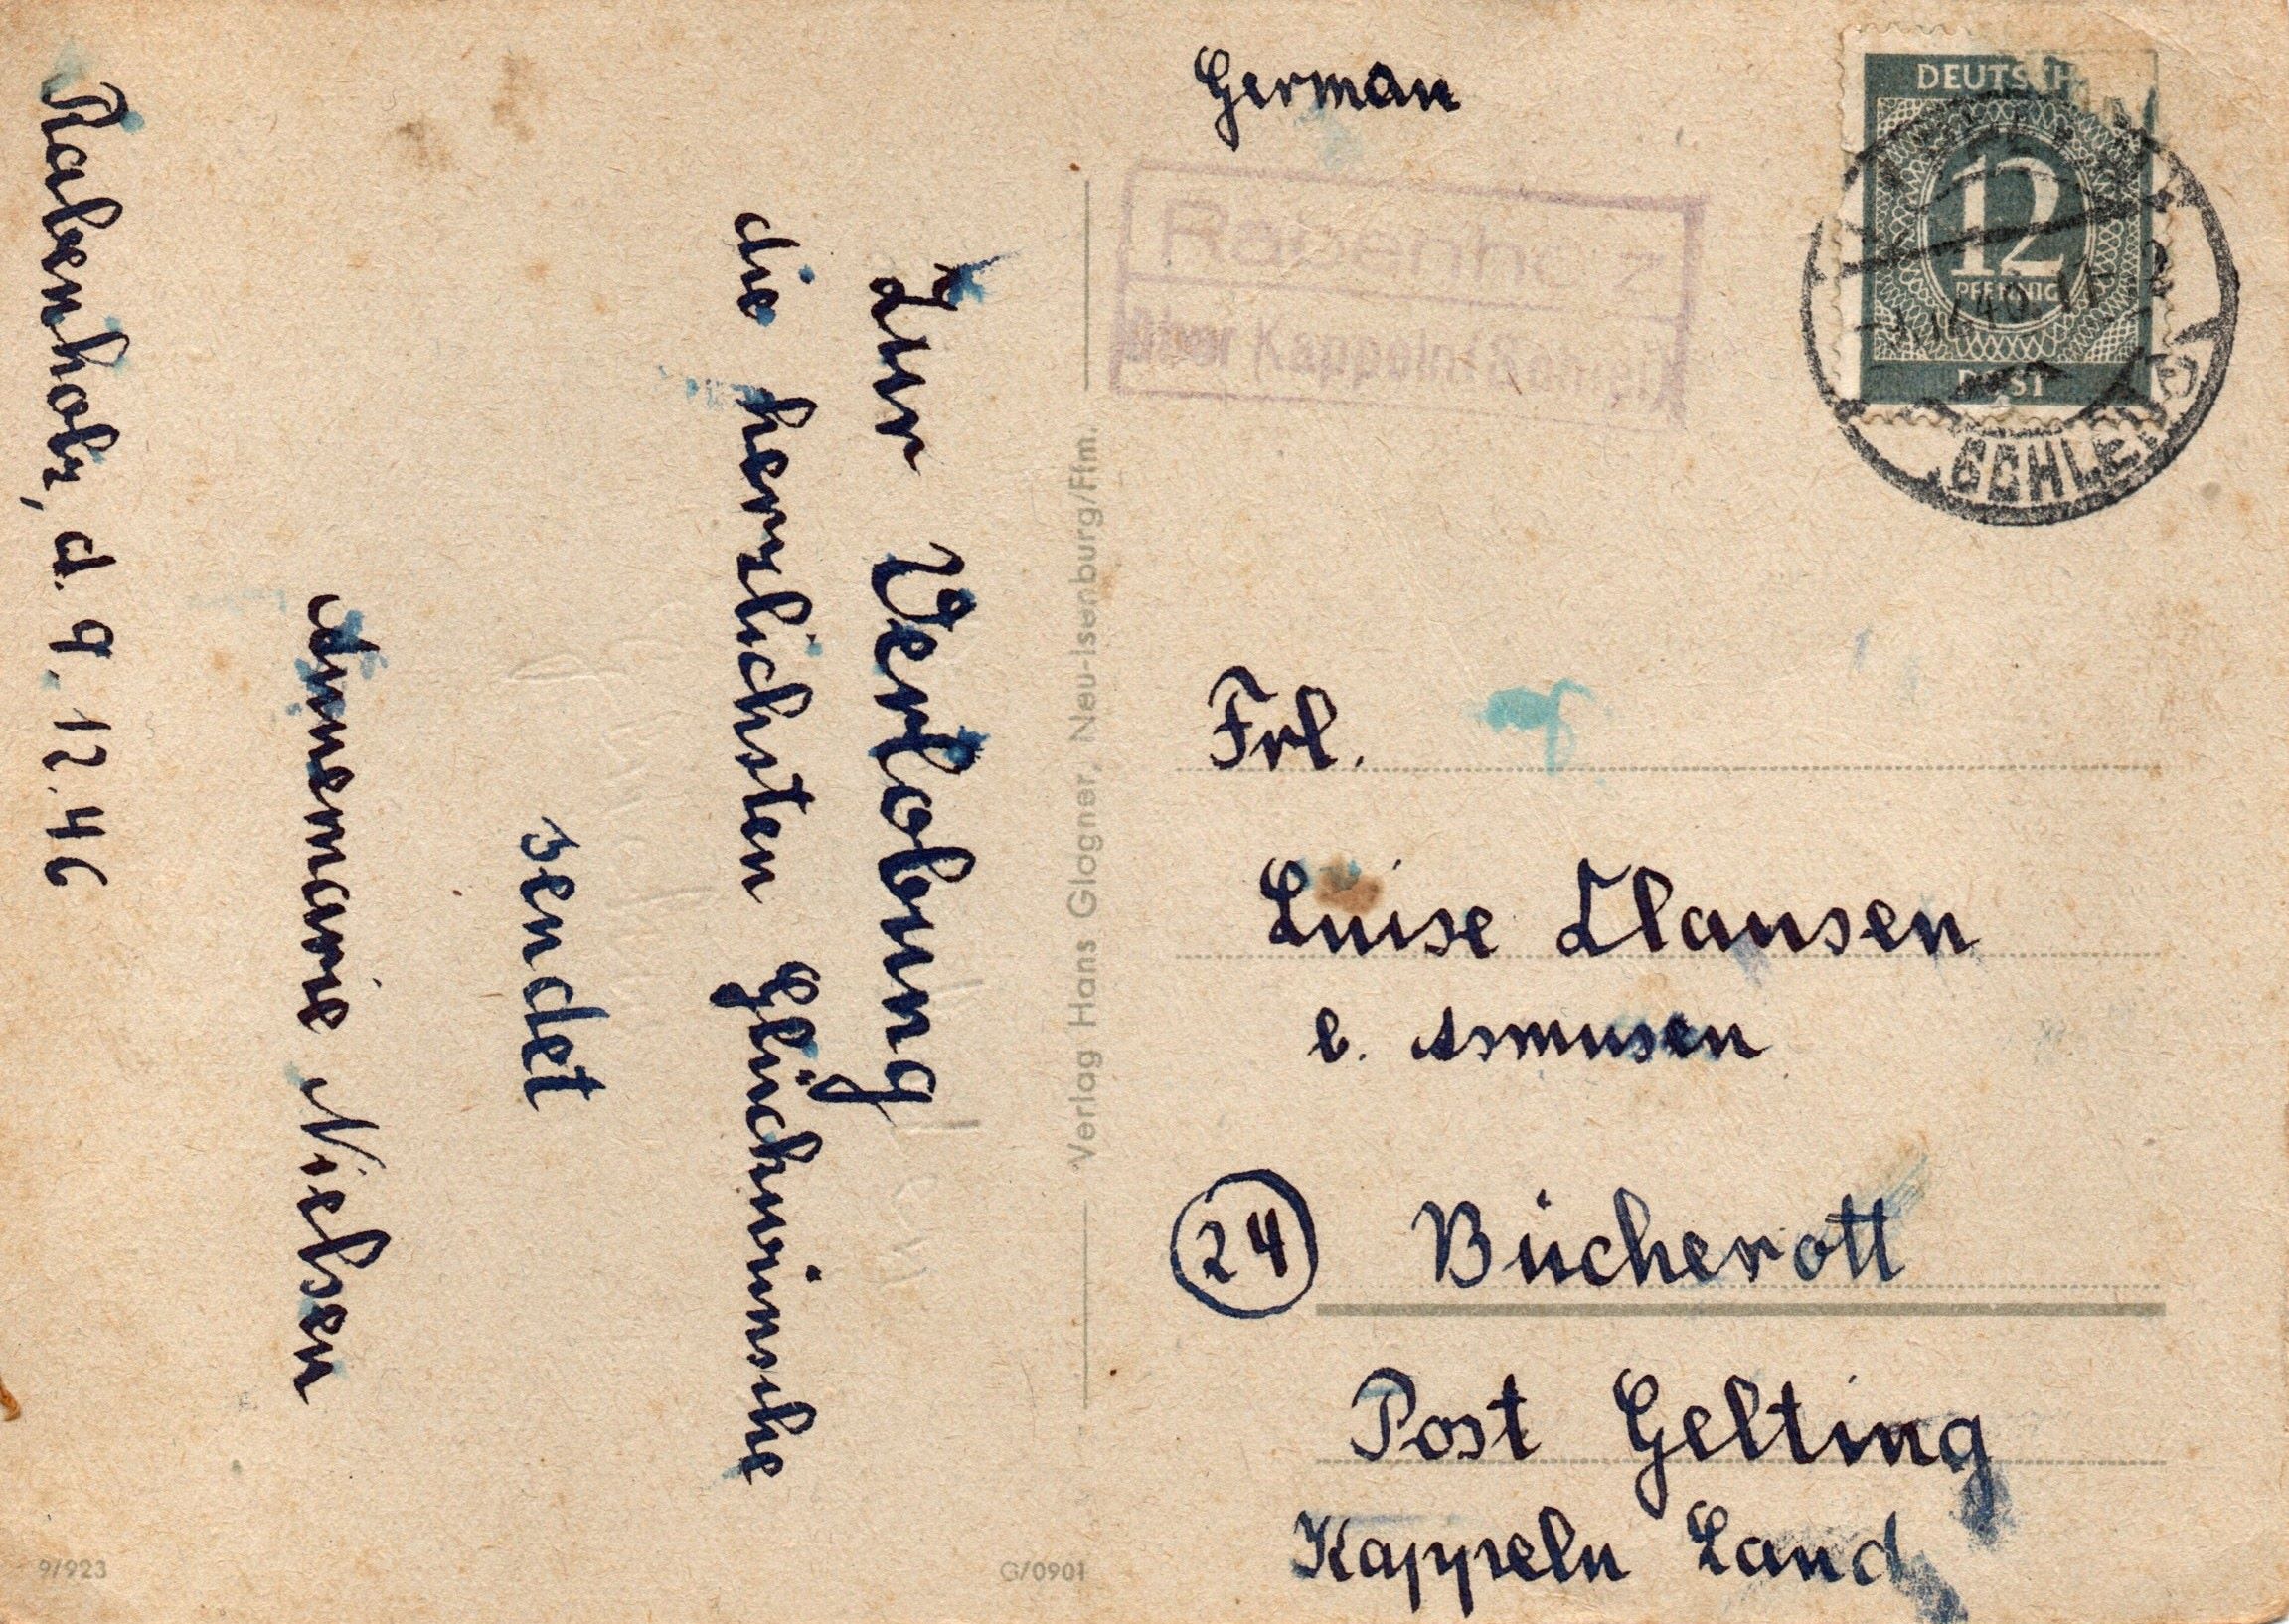 Rabenholz, d. 9.12.46
Zur Verlobung
die herzlichsten Glückwünsche
sendet
Annemarie Nielsen
Verlag Hans Glogner, Neu-Isenburg/Ffm.
9/923
G/0901
German
Rabenholz
über Kappeln (Schlei)
DEUTSCHE
12
PFENNIG
POST
Frl.
Luise Clausen
b. Asmusen
24 Bücherott
Post Gelting
Kappeln Land